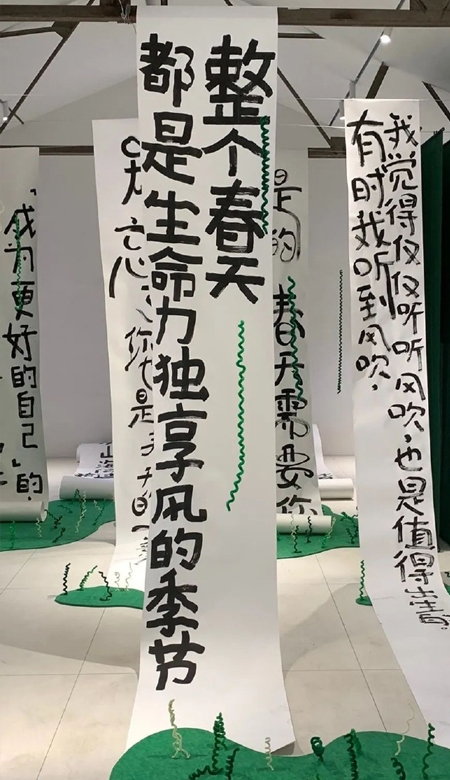 整个春天
都是生命力独享风的季节
有时我听到风吹，
我觉得仅仅听听风吹，也是值得出生
是的
春天需要你
你也是
成为更好的自己」的